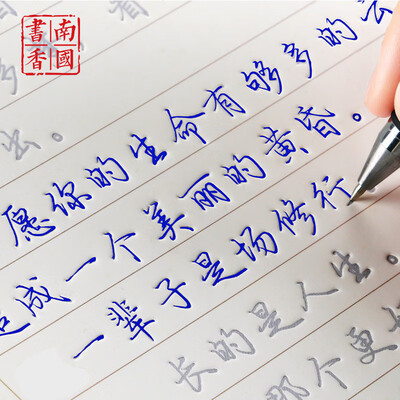 南國
書香
出。
愿你的生命有够多的云
造成一个美丽的黄昏。
一辈子是场修行
长的是人生。
那个更